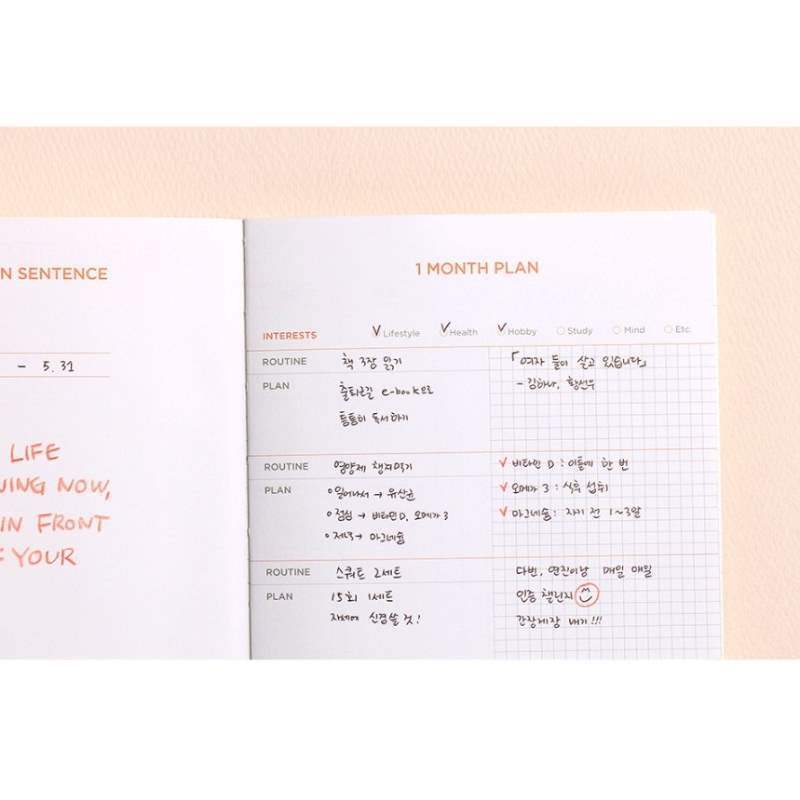 N SENTENCE
– 5.31
LIFE
ING NOW,
IN FRONT
F YOUR
1 MONTH PLAN
INTERESTS Lifestyle Health Hobby Study Mind Etc.
ROUTINE 책 3장 읽기
「여자 둘이 살고 있습니다」
– 김하나, 황선우
PLAN 출퇴근길 e-book으로
틈틈이 독서하기
ROUTINE 영양제 챙겨먹기
비타민 D : 이틀에 한 번
오메가 3 : 식후 섭취
마그네슘 : 자기 전 1~3알
PLAN 일어나서 → 유산균
점심 → 비타민 D, 오메가 3
저녁 → 마그네슘
ROUTINE 스쿼트 2세트
PLAN 15회 1세트
자세에 신경쓸 것!
다빈, 연진이랑 매일 매일
인증 챌린지
간장게장 내기!!!